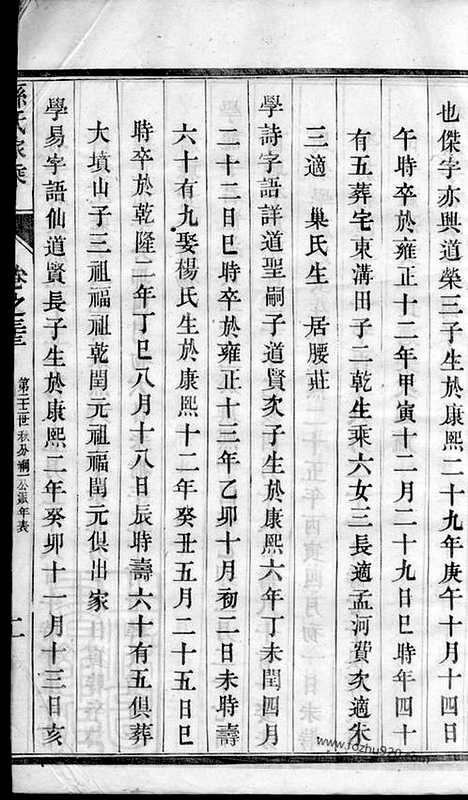 也傑字亦興道榮三子生於康熙二十九年庚午十月十四日
午時卒於雍正十二年甲寅十二月二十九日巳時年四十
有五葬宅東溝田子二乾生乘六女三長適孟河費次適朱
三適　巢氏生　居腰莊
學詩字語詳道聖嗣子道賢次子生於康熙六年丁未閏四月
二十二日巳時卒於雍正十三年乙卯十月初二日未時壽
六十有九娶楊氏生於康熙十二年癸丑五月二十五日巳
時卒於乾隆二年丁巳八月十八日辰時壽六十有五俱葬
大墳山子三祖福祖乾閏元祖福閏元俱出家
學易字語仙道賢長子生於康熙二年癸卯十一月十三日亥
孫氏家乘
卷之
第二十二世 秋分 公派年表
二
www.fozhu920.com